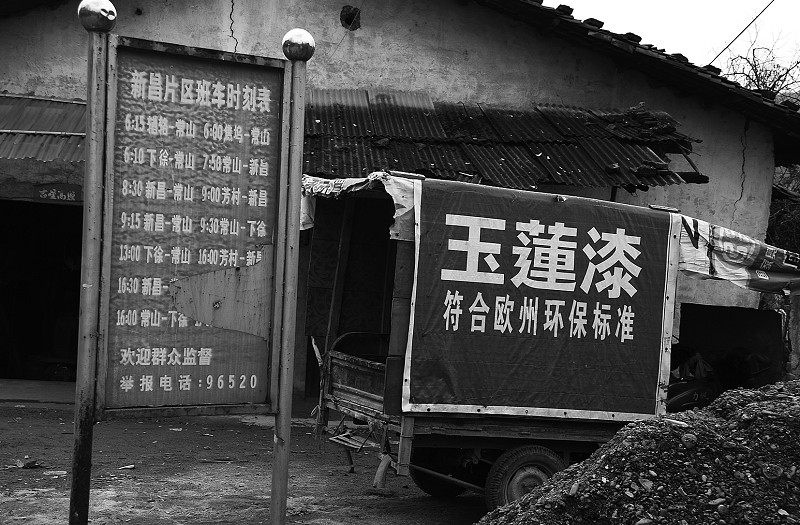 新昌片区班车时刻表
6:15 常山 6:80 坞-常山
6:10 下徐-常山 7:50 常山-新昌
8:30 新昌-常山 9:00 芳村-常山
9:15 新昌-常山 9:30 常山-下徐
13:00 下徐-常山 16:00 芳村-新
16:30 新昌-
16:00 常山-下徐
欢迎群众监督
举报电话:96520
玉蓮漆
符合欧州环保标准